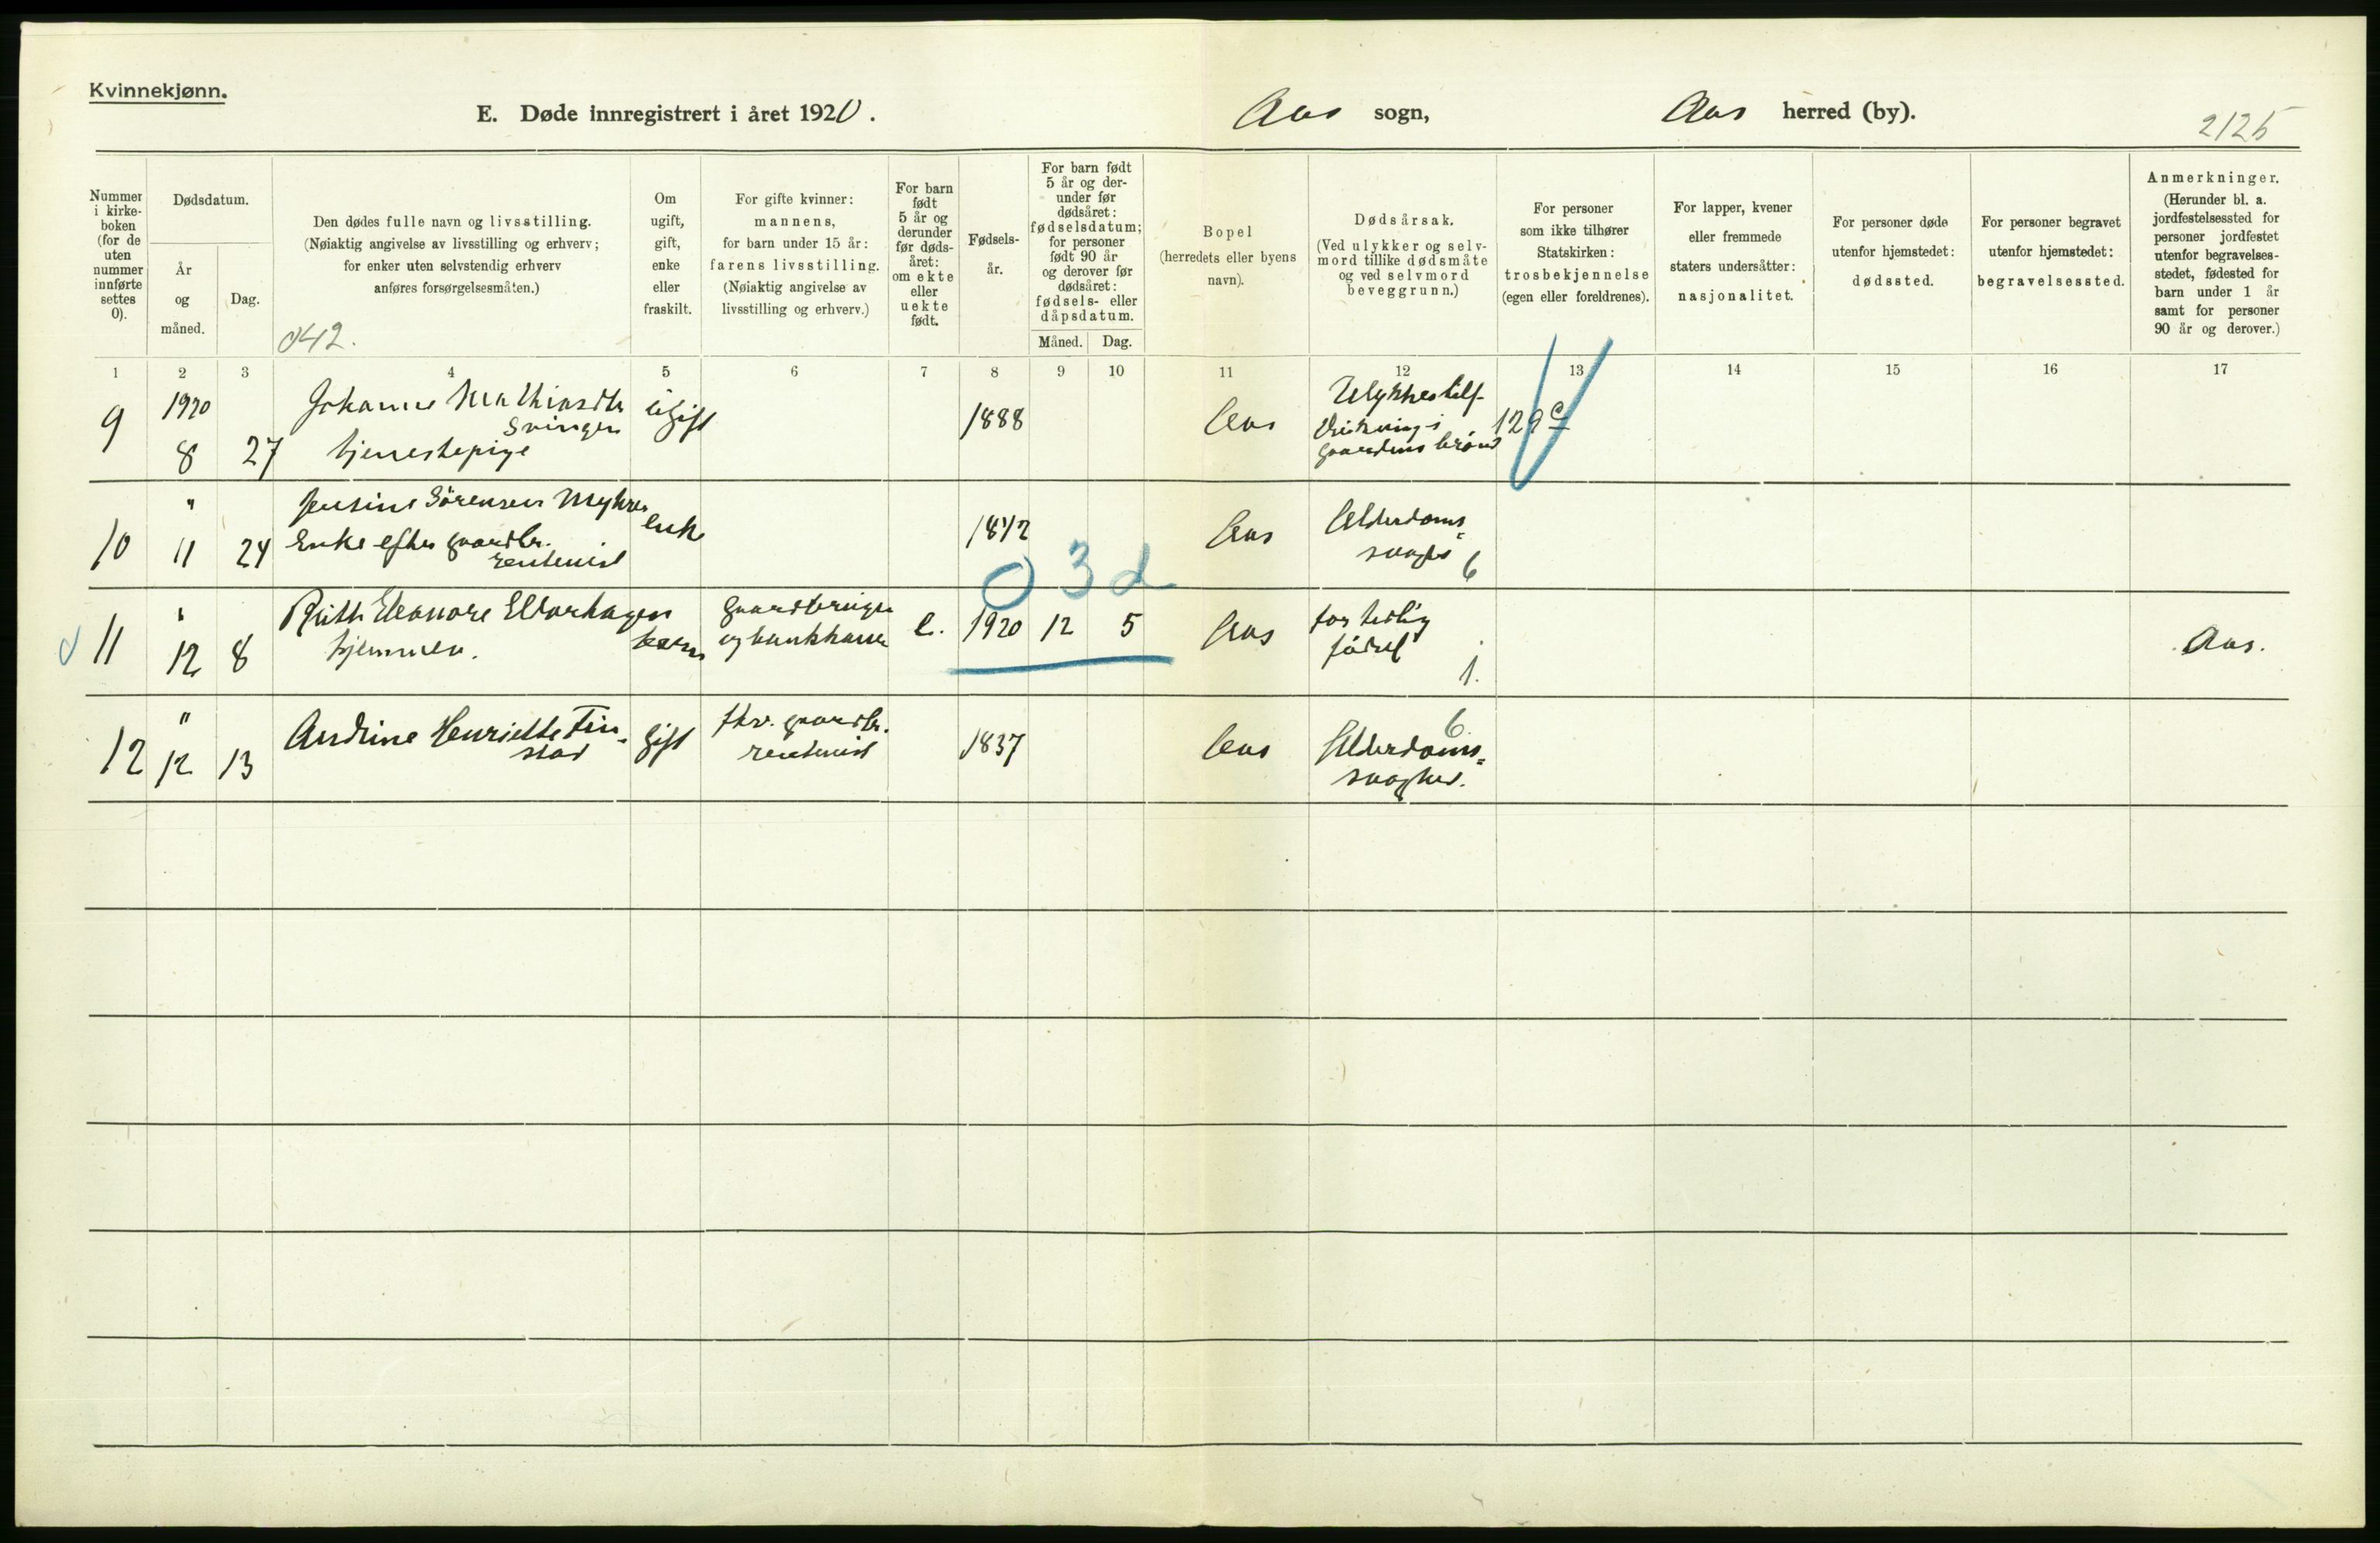 Kvinnekjønn.
E. Døde innregistrert i året 1920.
Aas sogn,
Aas herred (by).
2125
Nummer i kirke-boken (for de uten nummer innførte settes 0).
Dødsdatum.
År og måned.
Dag.
Den dødes fulle navn og livsstilling.
(Nøiaktig angivelse av livsstilling og erhverv;
for enker uten selvstendig erhverv
anføres forsørgelsesmåten.)
042.
Om
ugift,
gift,
enke
eller
fraskilt.
For gifte kvinner:
mannens,
for barn under 15 år:
farens livsstilling.
(Nøiaktig angivelse av
livsstilling og erhverv.)
For barn
født
5 år og
derunder
før døds-
året:
om ekte
eller
uekte
født.
Fødsels-
år.
For barn født
5 år og der-
under før
dødsåret:
fødselsdatum;
for personer
født 90 år
og derover før
dødsåret:
fødsels- eller
dåpsdatum.
Måned.
Dag.
Bopel
(herredets eller byens
navn).
Dødsårsak.
(Ved ulykker og selv-
mord tillike dødsmåte
og ved selvmord
beveggrunn.)
For personer
som ikke tilhører
Statskirken:
trosbekjennelse
(egen eller foreldrenes).
For lapper, kvener
eller fremmede
staters undersåtter:
nasjonalitet.
For personer døde
utenfor hjemstedet:
dødssted.
For personer begravet
utenfor hjemstedet:
begravelsessted.
Anmerkninger.
(Herunder bl. a.
jordfestelsessted for
personer jordfestet
utenfor begravelses-
stedet, fødested for
barn under 1 år
samt for personer
90 år og derover.)
1 2 3 4 5 6 7 8 9 10 11 12 13 14 15 16 17
9 1920 8 27 Johanne Mathiasdtr
Svingen
tjenestepige
ugift 1888 Aas Ulykkestilf.
Drukning i
gaardens brönd 129 c
10 " 11 24 Jensine Sörensen Myhrer
Enke efter gaardbr.
rentenist
enke 1842 Aas Alderdoms=
6
03d
11 " 12 8 Ruth Eleonore
hjemmev.
barn gaardbruger
og e. 1920 12 5 Aas for tidlig
födsel
1.
Aas.
12 " 12 13 Andrine Henriette Fin-
stad
gift fhv. gaardbr.
rentenist
1837 Aas 6
Alderdoms=
svaghed.